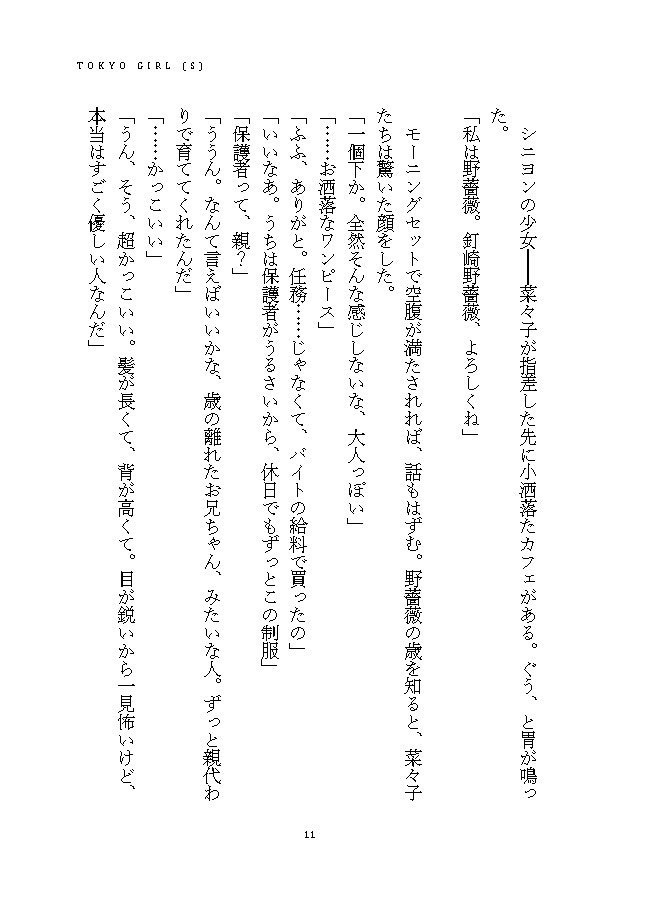 TOKYO GIRL (S)
　シニヨンの少女――菜々子が指差した先に小洒落たカフェがある。ぐう、と胃が鳴っ
た。
「私は野薔薇。釘崎野薔薇、よろしくね」
　モーニングセットで空腹が満たされれば、話もはずむ。野薔薇の歳を知ると、菜々子
たちは驚いた顔をした。
「一個下か。全然そんな感じしないな、大人っぽい」
「……お洒落なワンピース」
「ふふ、ありがと。任務……じゃなくて、バイトの給料で買ったの」
「いいなあ。うちは保護者がうるさいから、休日でもずっとこの制服」
「保護者って、親？」
「ううん。なんて言えばいいかな、歳の離れたお兄ちゃん、みたいな人。ずっと親代わ
りで育ててくれたんだ」
「……かっこいい」
「うん、そう、超かっこいい。髪が長くて、背が高くて。目が鋭いから一見怖いけど、
本当はすごく優しい人なんだ」
11